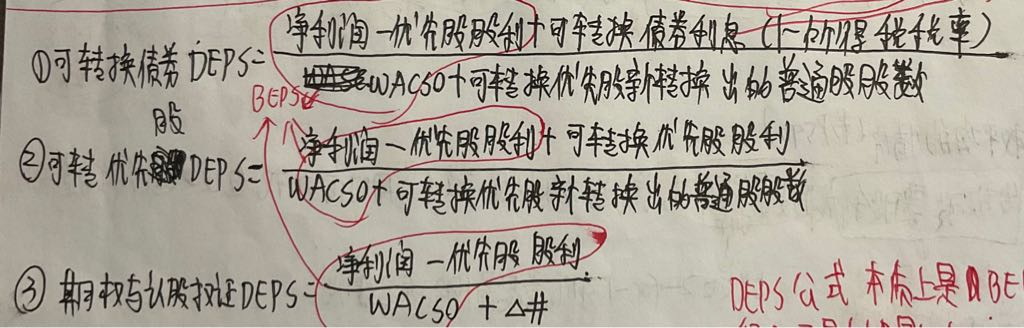 净利润-优先股股利+可转换债券利息(1-所得税税率)
①可转换债券 DEPS=
WACSO+可转换优先股新转换出的普通股股数
BEPS
股
净利润-优先股股利+可转换优先股股利
②可转 优先 DEPS=
WACSO+可转换优先股新转换出的普通股股数
净利润-优先股 股利
③ 期权与认股权证DEPS=
WACSO + △#
DEPS公式 本质上是 BE